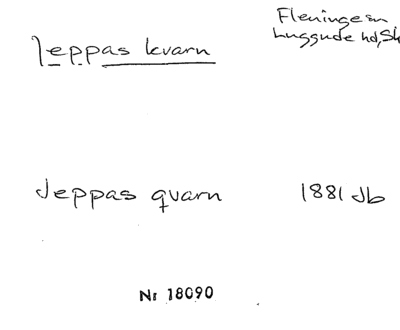 Jeppas kvarn
Fleninge sn
Luggude hd, Sk
Jeppas qvarn 1881 Jb
Nr 18090